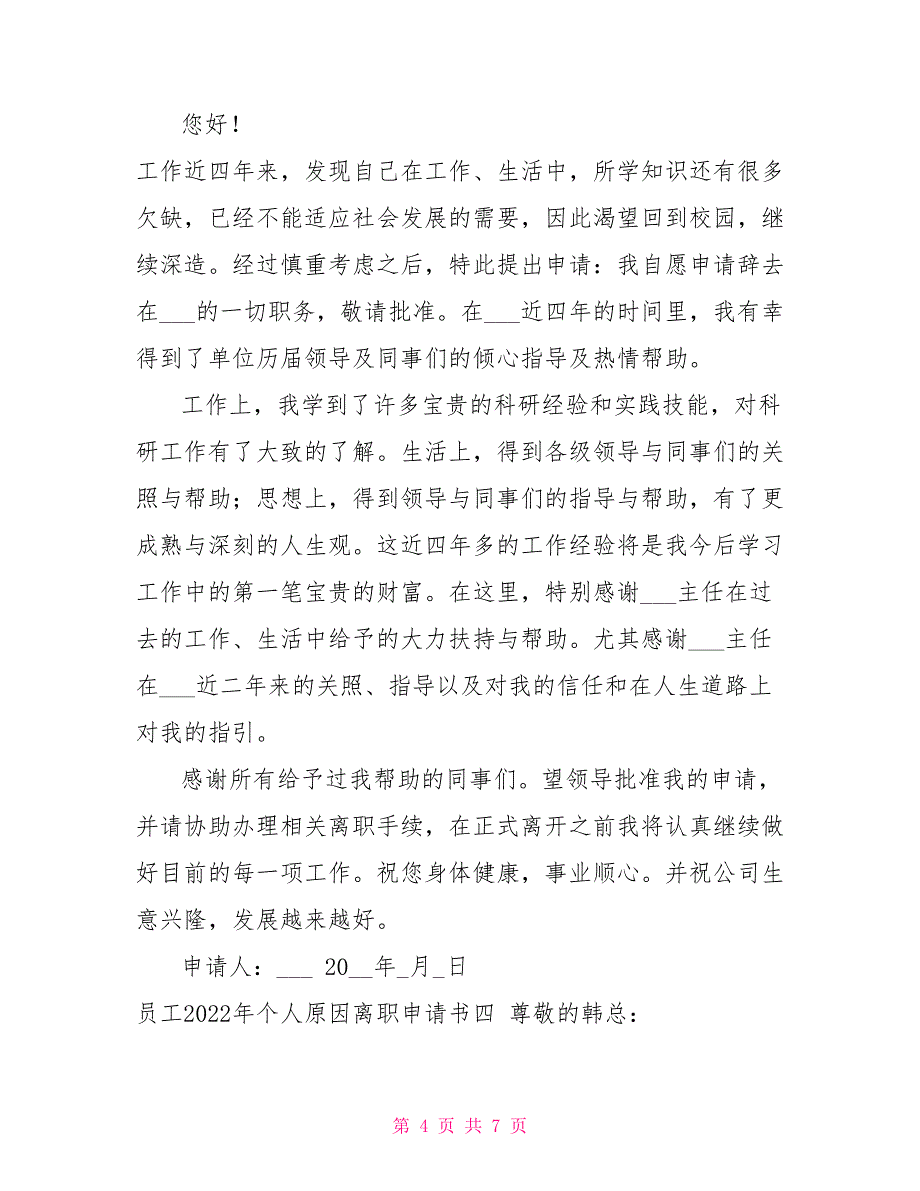 您好！
工作近四年来，发现自己在工作、生活中，所学知识还有很多
欠缺，已经不能适应社会发展的需要，因此渴望回到校园，继
续深造。经过慎重考虑之后，特此提出申请：我自愿申请辞去
在___的一切职务，敬请批准。在___近四年的时间里，我有幸
得到了单位历届领导及同事们的倾心指导及热情帮助。
工作上，我学到了许多宝贵的科研经验和实践技能，对科
研工作有了大致的了解。生活上，得到各级领导与同事们的关
照与帮助；思想上，得到领导与同事们的指导与帮助，有了更
成熟与深刻的人生观。这近四年多的工作经验将是我今后学习
工作中的第一笔宝贵的财富。在这里，特别感谢___主任在过
去的工作、生活中给予的大力扶持与帮助。尤其感谢___主任
在___近二年来的关照、指导以及对我的信任和在人生道路上
对我的指引。
感谢所有给予过我帮助的同事们。望领导批准我的申请，
并请协助办理相关离职手续，在正式离开之前我将认真继续做
好目前的每一项工作。祝您身体健康，事业顺心。并祝公司生
意兴隆，发展越来越好。
申请人：___ 20__年_月_日
员工2022年个人原因离职申请书四 尊敬的韩总：
第 4 页 共 7 页